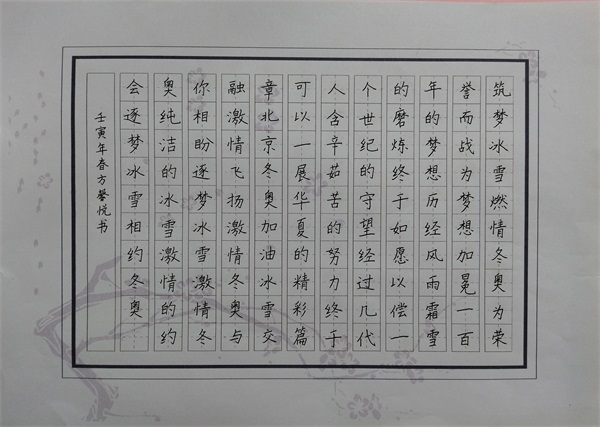 筑梦冰雪燃情冬奥为荣
誉而战为梦想加冕一百
年的梦想历经风雨霜雪
的磨炼终于如愿以偿一
个世纪的守望经过几代
人含辛茹苦的努力终于
可以一展华夏的精彩篇
章北京冬奥加油冰雪交
融激情飞扬激情冬奥与
你相盼逐梦冰雪激情冬
奥纯洁的冰雪激情的约
会逐梦冰雪相约冬奥
壬寅年春方馨悦书